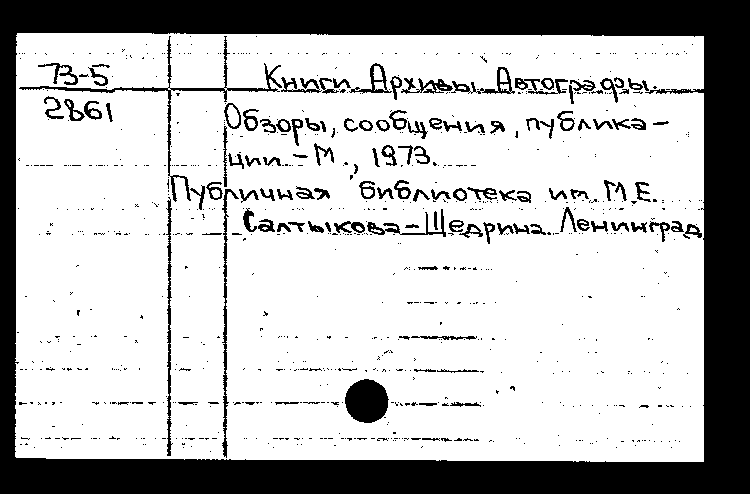 73-5
2861
Книги. Архивы. Автографы.
Обзоры, сообщения, публика-
ции. - М., 1973.
Публичная библиотека им. М.Е.
Салтыкова-Щедрина. Ленинград